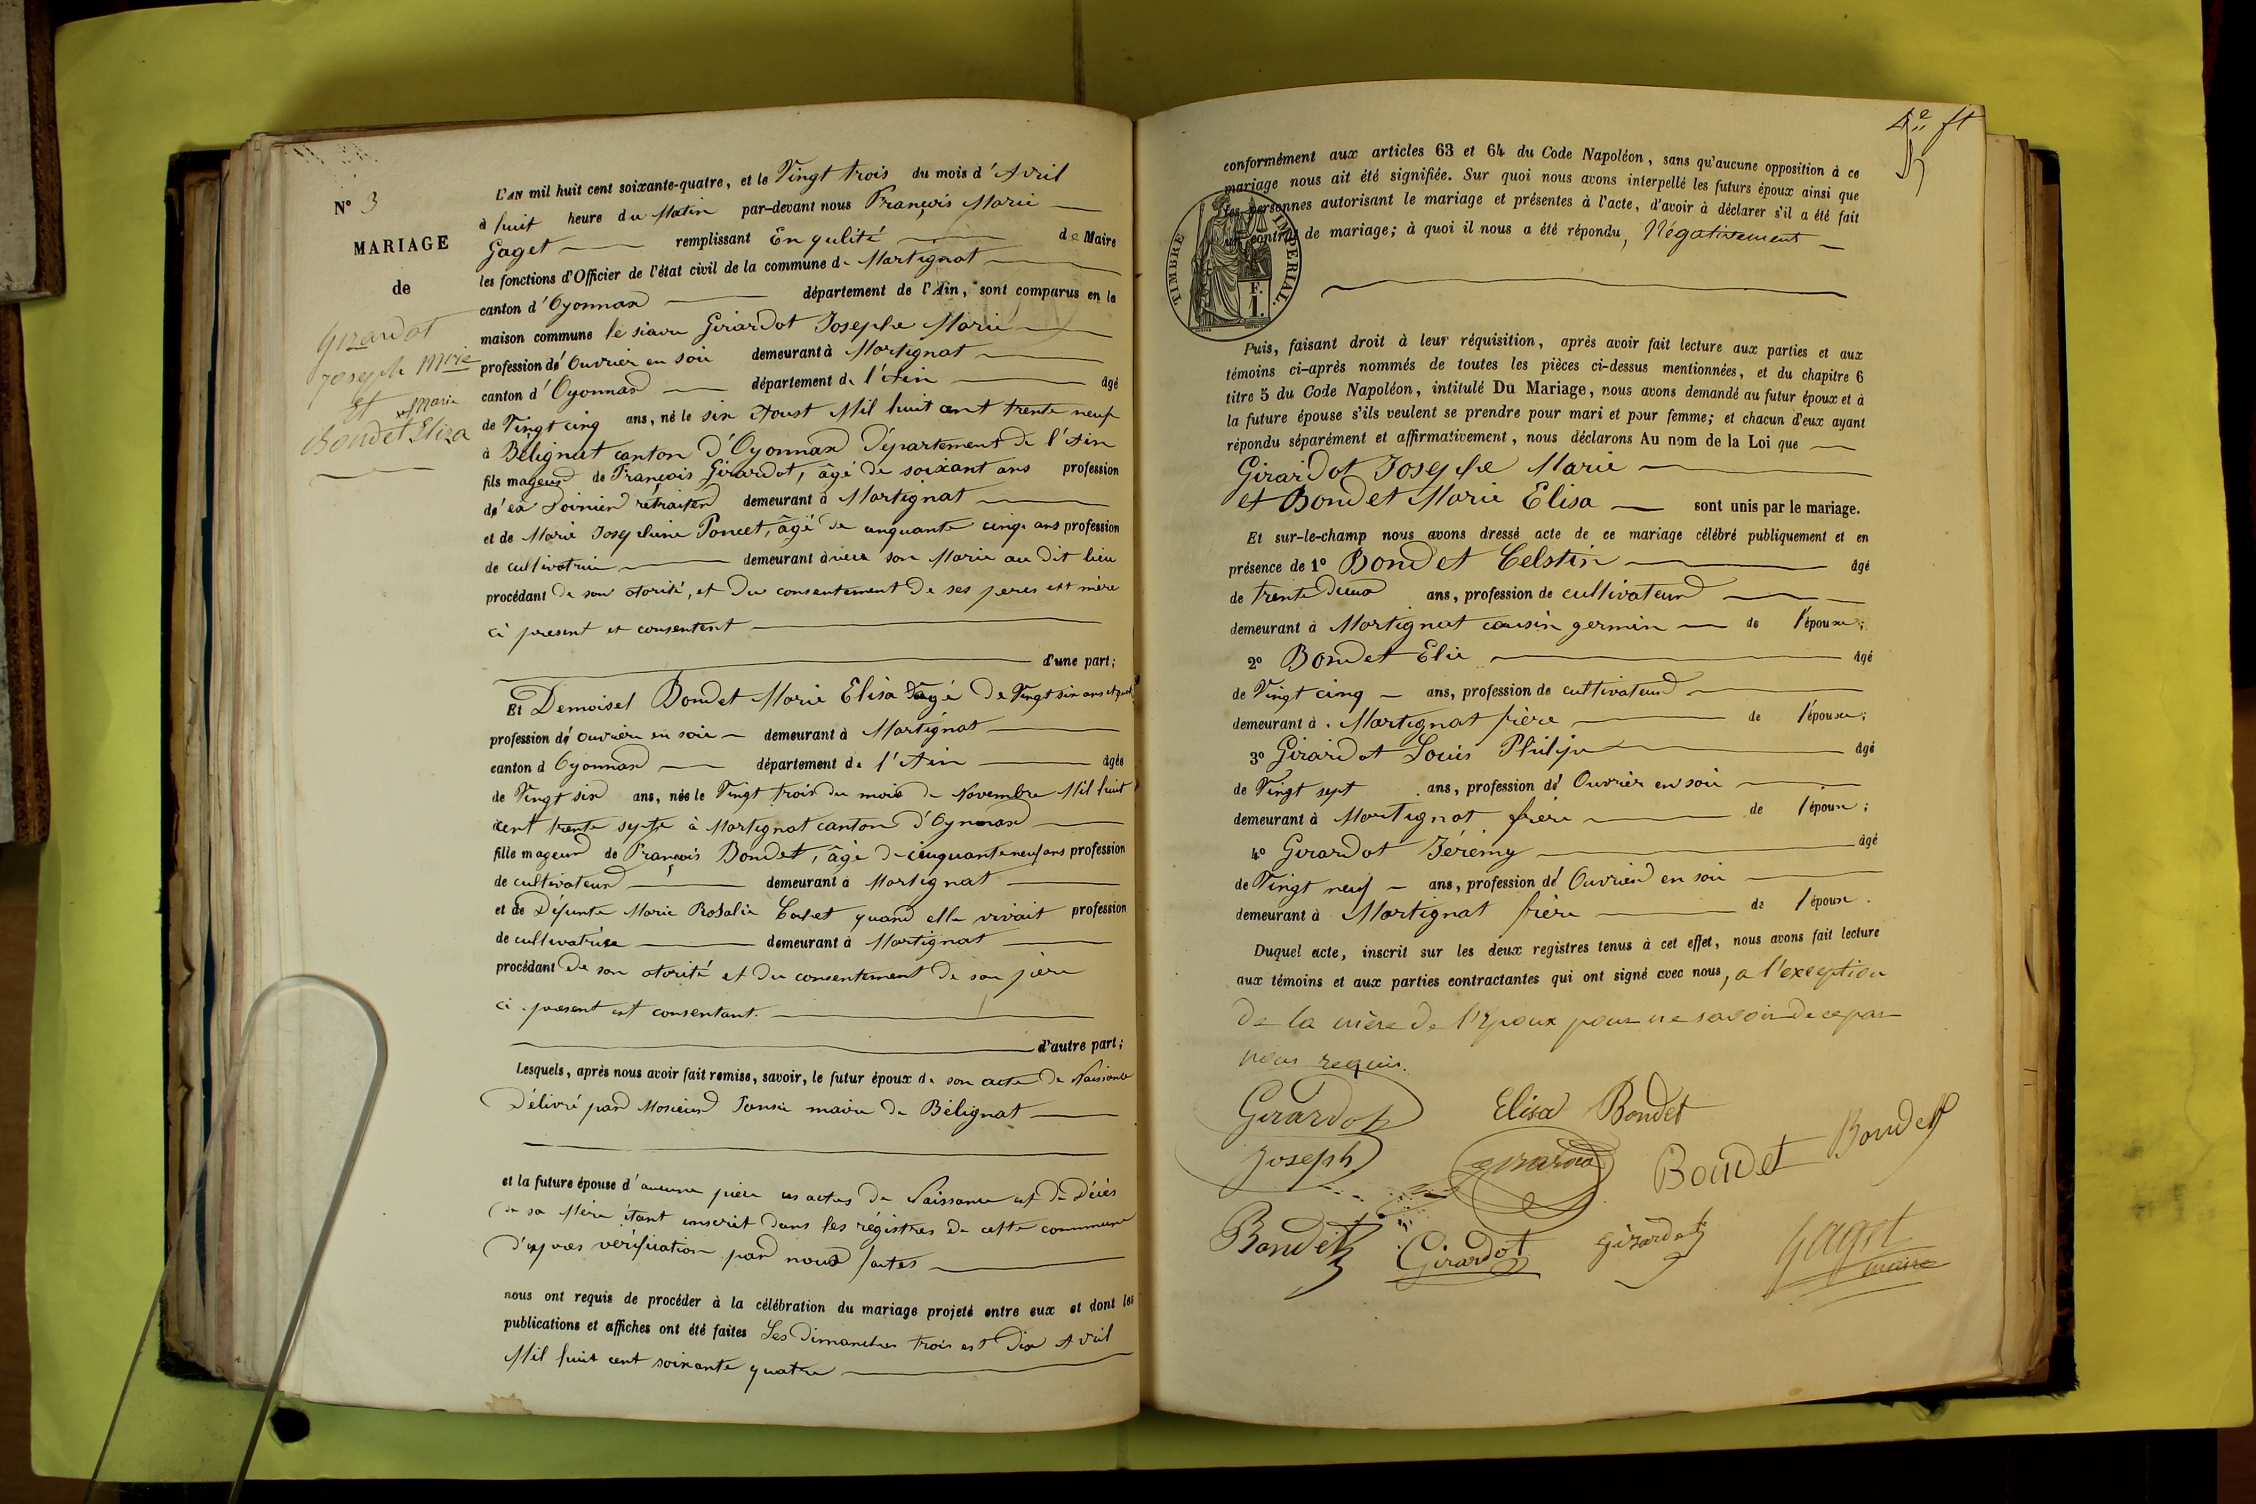 N° 3
MARIAGE
de
Girardot
Joseph Mrie
et
Marie
Bondet Eliza
L'AN mil huit cent soixante-quatre, et le Vingt trois du mois d'Avril
à huit heure du Matin par-devant nous François Marie
Gaget remplissant En qulité de Maire
les fonctions d'Officier de l'état civil de la commune de Martignat
canton d'Oyonnax département de l'Ain, sont comparus en la
maison commune le siavu Girardot Josephe Marie
profession dé Ouvrier en soie demeurant à Martignat
canton d'Oyonnax département de l'Ain âgé
de Vingt cinq ans, né le six Aoust Mil huit cent trente neuf
à Bélignat canton d'Oyonnax Département de l'Ain
fils mageur de François Girardot, âgé de soixant ans profession
dé ex Doinier rétraiter demeurant à Martignat
et de Marie Josephine Poncet, âgé de cinquante cinq ans profession
de cultivatrice demeurant avec son Marie au dit lieu
procédant de son otorité, et du consentement de ses peres est mère
ci present et consentent
d'une part;
Et Demoisel Bondet Marie Elisa âgé de Vingt six ans
profession dé ouvrière en soie demeurant à Martignat
canton d Oyonnax département de l'Ain âgée
de Vingt six ans, née le Vingt trois du mois de Novembre Mil huit
cent trente septe à Martignat canton d'Oynnax
fille mageur de François Bondet, âgé de cinquante neuf ans profession
de cultivateur demeurant à Martignat
et de Défunte Marie Rosalie quand elle vivait profession
de cultivatrise demeurant à Martignat
procédant de son otorité et du consentement de son père
ci present est consentant.
d'autre part;
Lesquels, après nous avoir fait remise, savoir, le futur époux de son acte de Naissance
Délivré par Mosieur maire de Bélignat
et la future épouse d'aucune pièce ses actes de Naissance et de Décès
de sa Mère étant inscrit dans les régistres de cette commune
D'apres vérification par nous faites
nous ont requis de procéder à la célébration du mariage projeté entre eux et dont les
publications et affiches ont été faites Les Dimanches trois est Dix Avril
Mil huit cent soixante quatre
conformément aux articles 63 et 64 du Code Napoléon, sans qu'aucune opposition à ce
mariage nous ait été signifiée. Sur quoi nous avons interpellé les futurs époux ainsi que
les personnes autorisant le mariage et présentes à l'acte, d'avoir à déclarer s'il a été fait
un contrat de mariage; à quoi il nous a été répondu, Négativement
TIMBRE IMPERIAL.
1 F.
Puis, faisant droit à leur réquisition, après avoir fait lecture aux parties et aux
témoins ci-après nommés de toutes les pièces ci-dessus mentionnées, et du chapitre 6
titre 5 du Code Napoléon, intitulé Du Mariage, nous avons demandé au futur époux et à
la future épouse s'ils veulent se prendre pour mari et pour femme; et chacun d'eux ayant
répondu séparément et affirmativement, nous déclarons Au nom de la Loi que
Girardot Josephe Marie
et Bondet Marie Elisa sont unis par le mariage.
Et sur-le-champ nous avons dressé acte de ce mariage célébré publiquement et en
présence de 1° Bondet Celstin âgé
de trente deux ans, profession de cultivateur
demeurant à Martignat cousin germin de l'épouse;
2° Bondet Elie âgé
de Vingt cinq ans, profession de cultivateur
demeurant à Martignat frère de l'épouse;
3° Girardot Louis Philipe âgé
de Vingt sept ans, profession dé Ouvrier en soie
demeurant à Martignat frère de l'époux;
4° Girardot Jérémy âgé
de Vingt neuf ans, profession dé Ouvrier en soie
demeurant à Martignat frère de l'époux.
Duquel acte, inscrit sur les deux registres tenus à cet effet, nous avons fait lecture
aux témoins et aux parties contractantes qui ont signé avec nous, a l'exception
de la mère de l'époux pour ne savoir de ce par
nous requis.
Girardot Elisa Bondet
Joseph Girardot Bondet Bondet
Bondet Girardot Girardot Gaget
maire